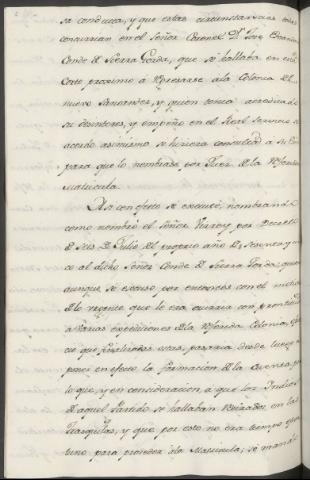 sa conducta, y que estas circunstancias
concurrian en el Señor Coronel Dn. José
Conde de Sierra Gorda, que se hallaba en esta
Corte proximo á regresarse ala Colonia del
nuevo Santander, y quien tenia acreditado
su desinteres, y empeño en el Real Servicio se
acordó asimismo se hiciera consulta á su
para que lo nombrase por Juez de la referida
Matricula.
Asi con efecto se executó, nombrando
como nombró el Señor Virrey por Decreto
de seis de Julio del propio año de sesenta y
co al dicho Señor Conde de Sierra Gorda, quien
aunque se escusó por entonces con el
delo urgente que le era ocurrir con prontitud
á varias expediciones dela referida Colonia,
cio que finalizadas estas, pasaria desde luego á
poner en efecto la formacion dela Cuenta, por
lo que, y en consideracion, á que los Indios
de aquel Partido se hallaban retirados en las
y que por esto no era tiempo
tuno para proceder ála Matricula; se mandó